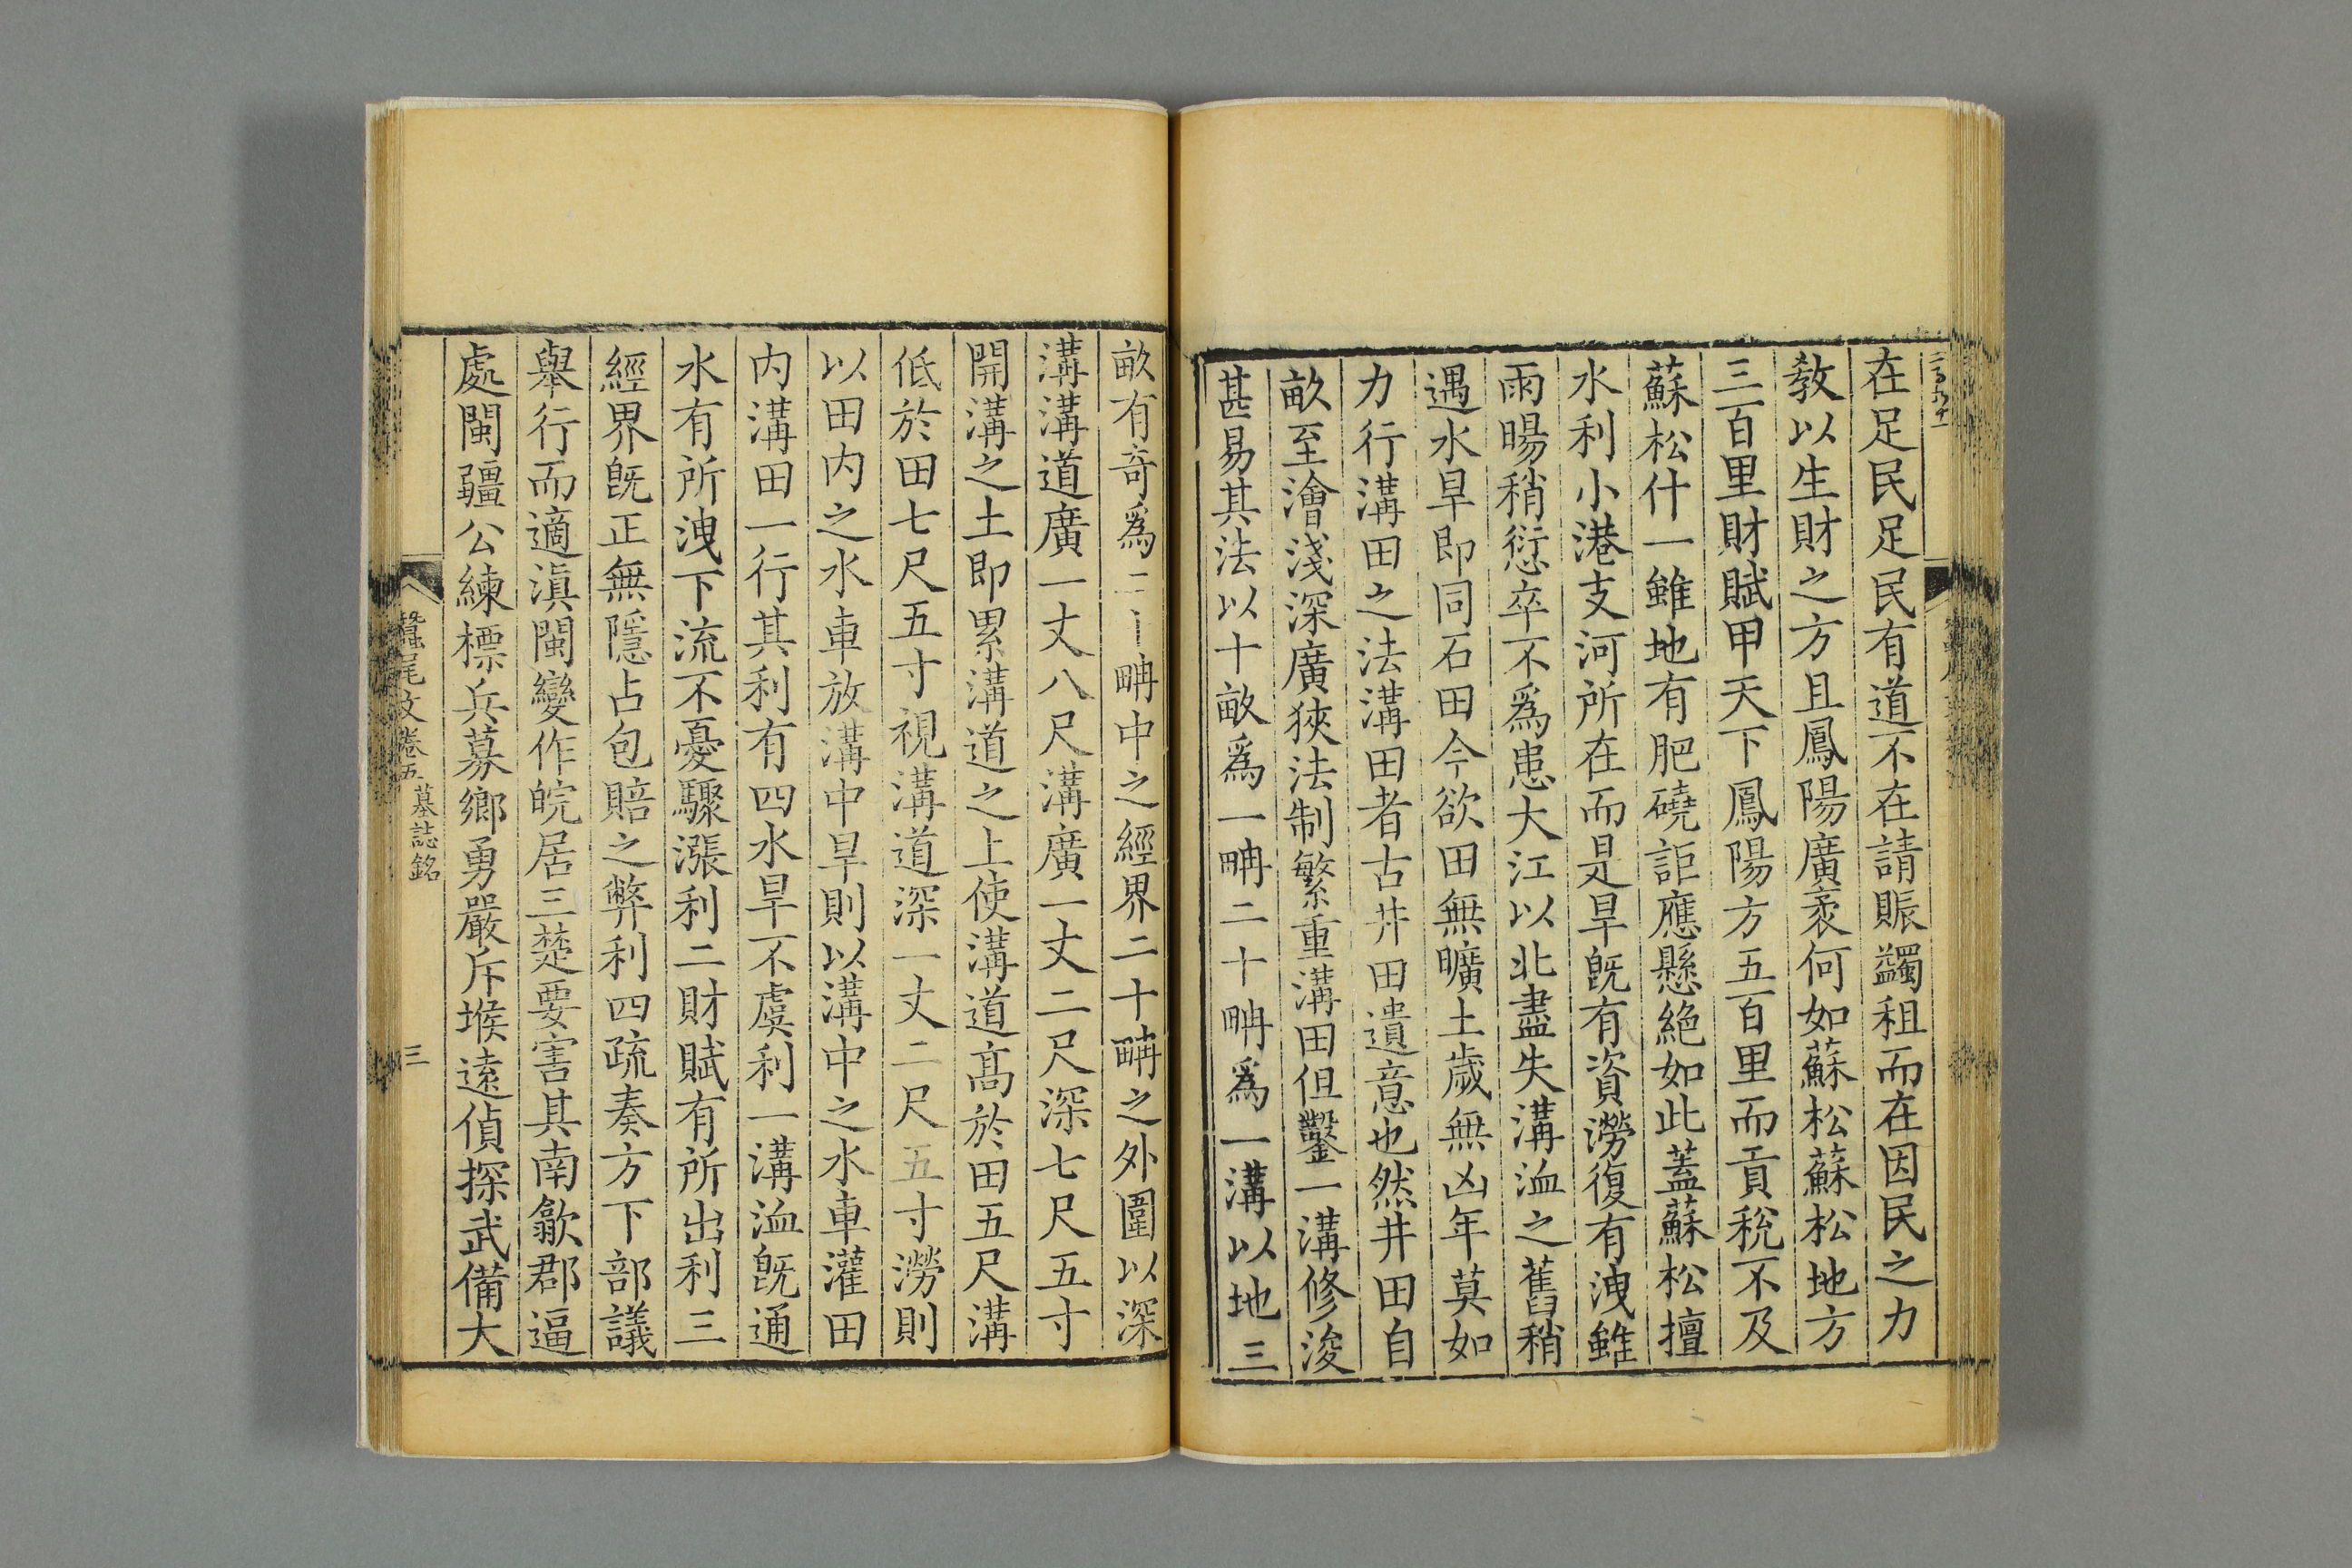 在足民足民有道不在請賑蠲租而在因民之力
教以生財之方且鳳陽廣袤何如蘇松蘇松地方
三百里財賦甲天下鳳陽方五百里而貢稅不及
蘇松什一雖地有肥磽詎應懸絕如此蓋蘇松擅
水利小港支河所在而是旱旣有資澇復有洩雖
雨暘稍愆卒不爲患大江以北盡失溝洫之舊稍
遇水旱即同石田今欲田無曠土歲無凶年莫如
力行溝田之法溝田者古井田遺意也然井田自
畝至澮淺深廣狹法制繁重溝田但鑿一溝修浚
甚易其法以十畝爲一𤱶二十𤱶爲一溝以地三
畝有奇爲二十𤱶中之經界二十𤱶之外圍以深
溝溝道廣一丈八尺溝廣一丈二尺深七尺五寸
開溝之土即累溝道之上使溝道高於田五尺溝
低於田七尺五寸視溝道深一丈二尺五寸澇則
以田内之水車放溝中旱則以溝中之水車灌田
内溝田一行其利有四水旱不虞利一溝洫旣通
水有所洩下流不憂驟漲利二財賦有所出利三
經界旣正無隱占包賠之弊利四疏奏方下部議
舉行而適滇閩變作皖居三楚要害其南歙郡逼
處閩疆公練標兵募鄉勇嚴斥堠遠偵探武備大
蠶尾文卷五 墓誌銘
三